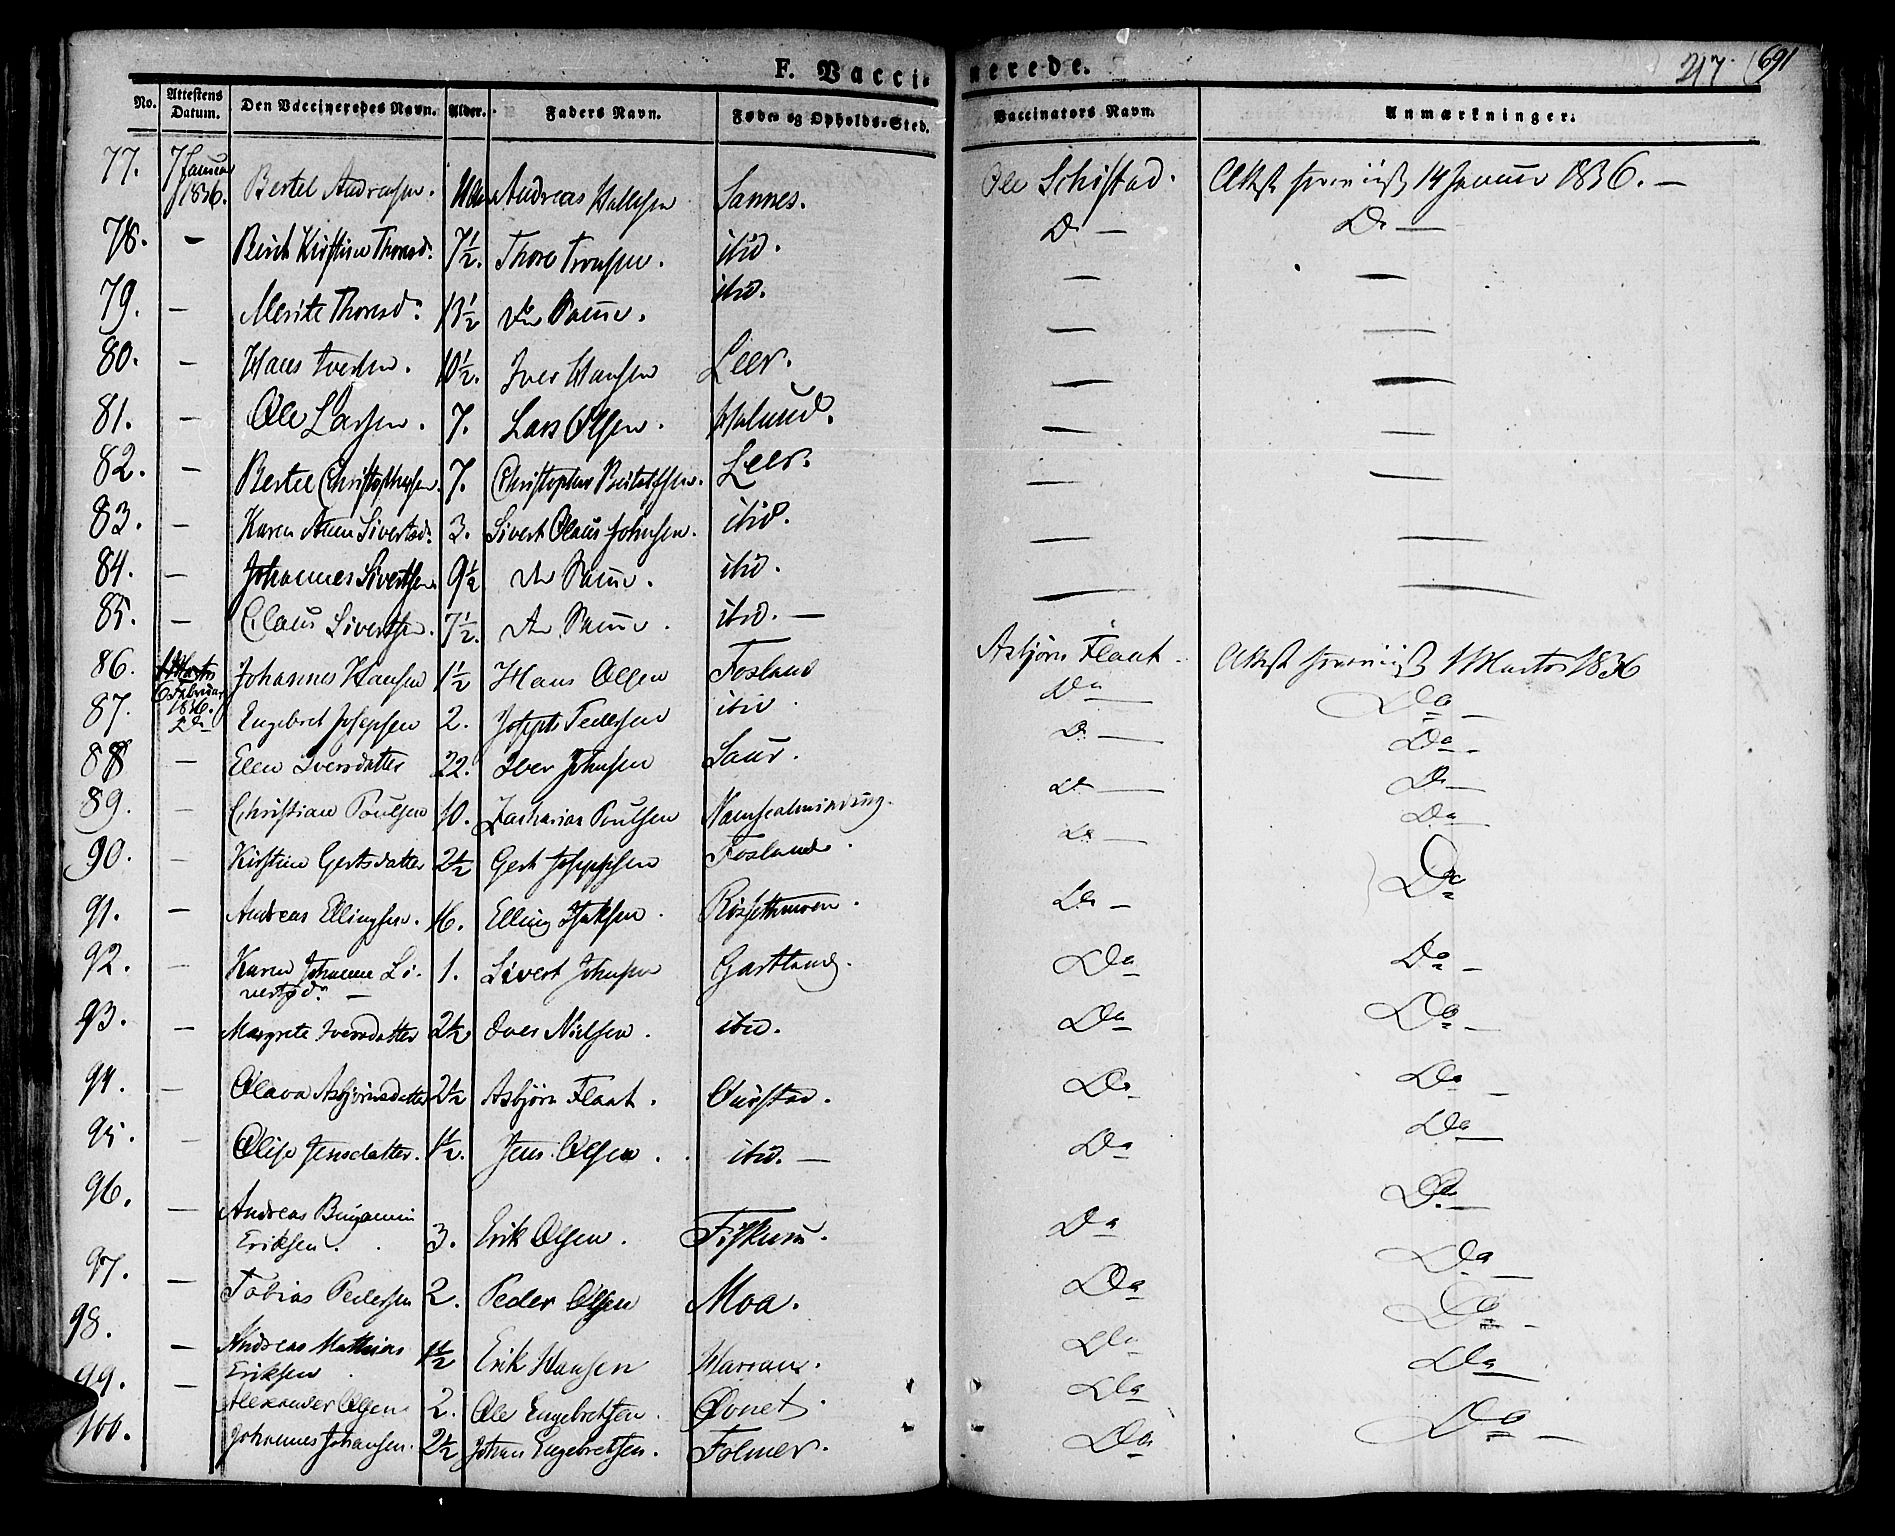 F. Vaccinerede.
217. 691
No. Attestens Datum. Den Vaccineredes Navn. Alder. Faders Navn. Føde- og Opholds-Sted. Vaccinators Navn. Anmærkninger.
77. 7 Januar 1836. Bertel Andreasen. Andreas Hallesen Sannes. Ole Schistad. 14 Januar 1836. —
78. — Berit Kirstine Thoresd. 7½. Thore Tronsen. ibid. Do — Do —
79. — Merite Thoresd. 13½ den Samme. ibid. — —
80. — Hans Iversen. 10½. Iver Hansen Leer. — —
81. — Ole Larsen. 7. Lars Olsen. Halund. — —
82. — Bertel Christophersen. 7. Christopher Leer. — —
83. — Karen Anne Sivertsd. 3. Sivert Olaus Johnsen. ibid. — —
84. — Johannes Sivertsen. 9½ den Samme. ibid. — —
85. — Olaus Sivertsen. 7½. den Samme. ibid. — — —
86. 6 Februar 1836. Johannes Hansen 1½ Hans Olsen Fosland Asbjörn Flaat. 1 Martz 1836
87. Do Engebret Josepsen 2. Joseph Pedersen ibid. Do — Do —
88 — Elen Iversdatter 22. Iver Johnsen Saur. Do — Do —
89. — Christian Poulsen 10. Zacharias Poulsen Do — Do —
90. — Kirstine Gertsdatter 2½ Gert Josephsen Fosland. Do — Do —
91. — Andreas Ellingsen. 16. Elling Isaksen. Rössethmoen. Do — Do
92. — Karen Johanne Si-
vertsd. — 1. Sivert Johnsen Gartland. Do Do —
93. — Margrete Iversdatter 2½ Iver Nielsen. ibid. Do Do —
94. — Olava Asbjörnsdatter 2½ Asbjörn Flaat. Do Do —
95. — Olise Jensdatter. 1½. Jens Olsen. ibid. — Do Do —
96. — Andreas Benjamin
Eriksen. 3. Erik Olsen. Fiskum. Do Do —
97. — Tobias Pedersen 2. Peder Olsen Moa. Do Do —
98. — Andreas Mathias
Eriksen 1½ Erik Hansen Harran. Do Do —
99. — Alexander Olsen 2. Ole Engebretsen. Do Do —
100. Johannes Johansen. 2½ Johan Engebretsen. Folmer. Do Do —